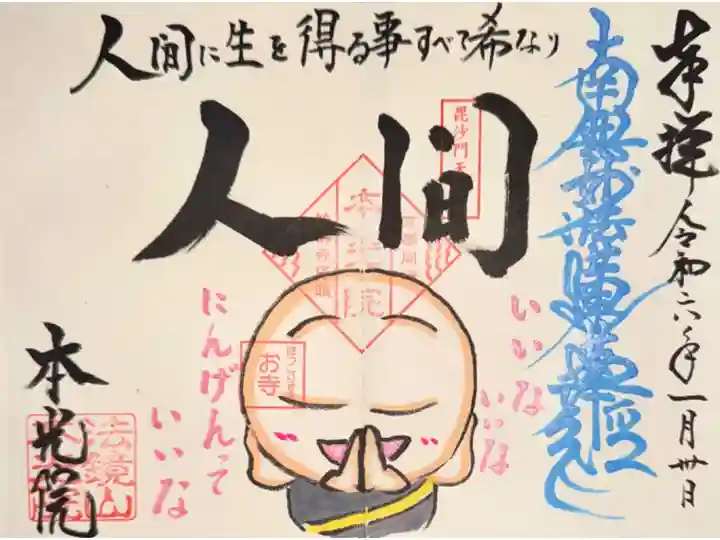 奉拝 令和六年一月卅日
南無妙法蓮華経
人間に生を得る事すべて希なり
人間
毘沙門天
いいな
いいな
にんげんって
いいな
お寺
本光院
法鏡山